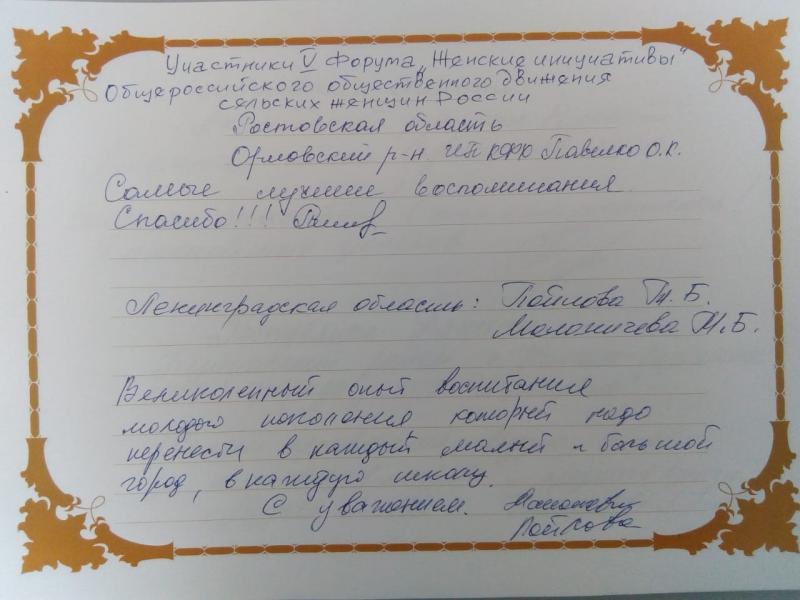 Участники V Форума „Женские инициативы"
Общероссийского общественного движения
сельских женщин России
Ростовская область
Орловский р-н ИП КФХ Павелко О.К.
Самые лучшие воспоминания
Спасибо!!!
Ленинградская область: Пойлова Т. Б.
Маланичева Т.Б.
Великолепный опыт воспитания
молодого поколения, который надо
перенести в каждый малый и большой
город, в каждую школу.
С уважением.
Пойлова